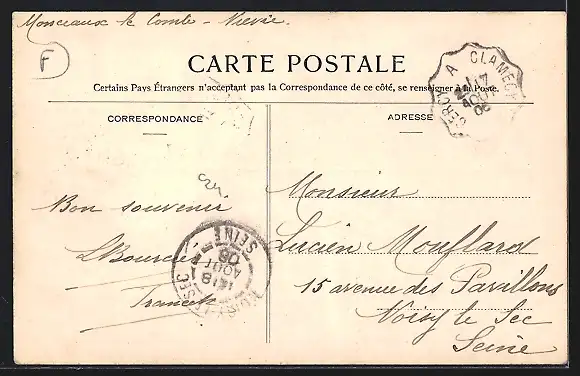 Monceaux le Comte - Nièvre.
F
CARTE POSTALE
Certains Pays Étrangers n'acceptant pas la Correspondance de ce côté, se renseigner à la Poste.
CORRESPONDANCE
ADRESSE
CERCY A CLAMECY
17
AOUT
06
Bon souvenir
LBourcier
Monsieur
Lucien Mouflard
15 avenue des Pavillons
Noisy le Sec
Seine
NOISY-LE-SEC
SEINE
18
AOUT
06